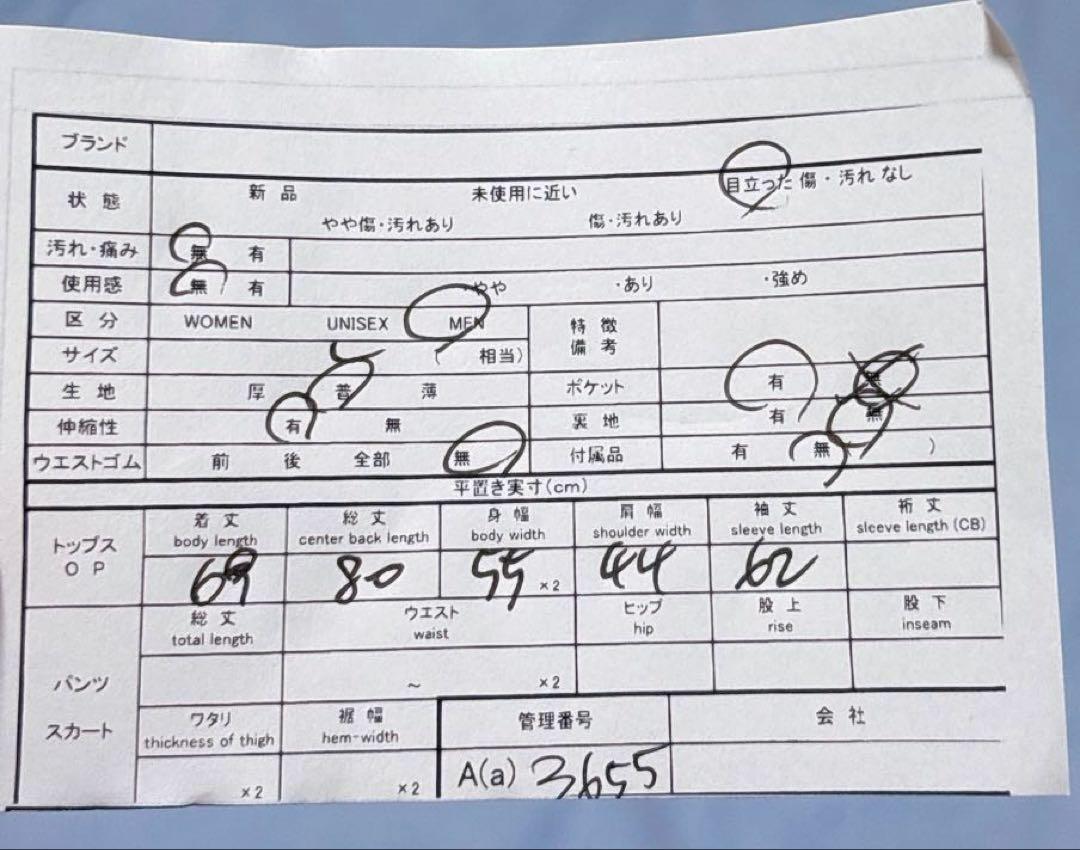 ブランド
状 態 新 品 未使用に近い 目立った 傷・汚れ なし
やや傷・汚れあり 傷・汚れあり
汚れ・痛み 無 有
使用感 無 有 ・やや ・あり ・強め
区 分 WOMEN UNISEX MEN 特 徴
備 考
サイズ L ( 相当)
生 地 厚 普 薄 ポケット 有 無
伸縮性 有 無 裏 地 有 無
ウエストゴム 前 後 全部 無 付属品 有 (無 )
平置き実寸(cm)
トップス
O P
着 丈 総 丈 身 幅 肩 幅 袖 丈 裄 丈
body length center back length body width shoulder width sleeve length sleeve length (CB)
69 80 55 ×2 44 62
パンツ
スカート
総 丈 ウエスト ヒップ 股 上 股 下
total length waist hip rise inseam
~ ×2
ワタリ 裾 幅 管理番号 会 社
thickness of thigh hem-width
×2 ×2 A(a) 3655